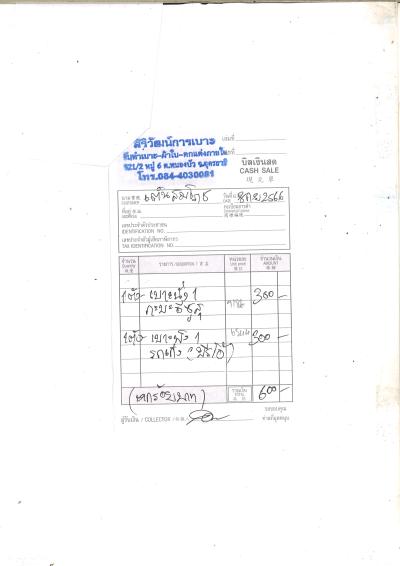 ศิริวัฒน์การเบาะ
รับทำเบาะ-ผ้าใบ-ตกแต่งภายใน
521/2 หมู่ 6 ต.หนองบัว จ.อุดรธานี
โทร.084-4030081
เล่มที่
เลขที่
บิลเงินสด
CASH SALE
现 支 单
นาม
CUSTOMER
วันที่
DATE
2566
ที่อยู่
ADDRESS
เลขประจำตัวประชาชน
IDENTIFICATION NO.
เลขประจำตัวผู้เสียภาษีอากร
TAX IDENTIFICATION NO.
จำนวน
Quantity
รายการ
หน่วยละ
Unit price
จำนวนเงิน
AMOUNT
1ตัว เบาะนั่ง 1 300-
กะบะอีซูซุ
1ตัว เบาะพิง 1 300-
รถเก๋ง
(หกร้อยบาท) รวมเงิน
TOTAL 600-
ผู้รับเงิน / COLLECTOR
ขอขอบคุณ
ท่านที่อุดหนุน